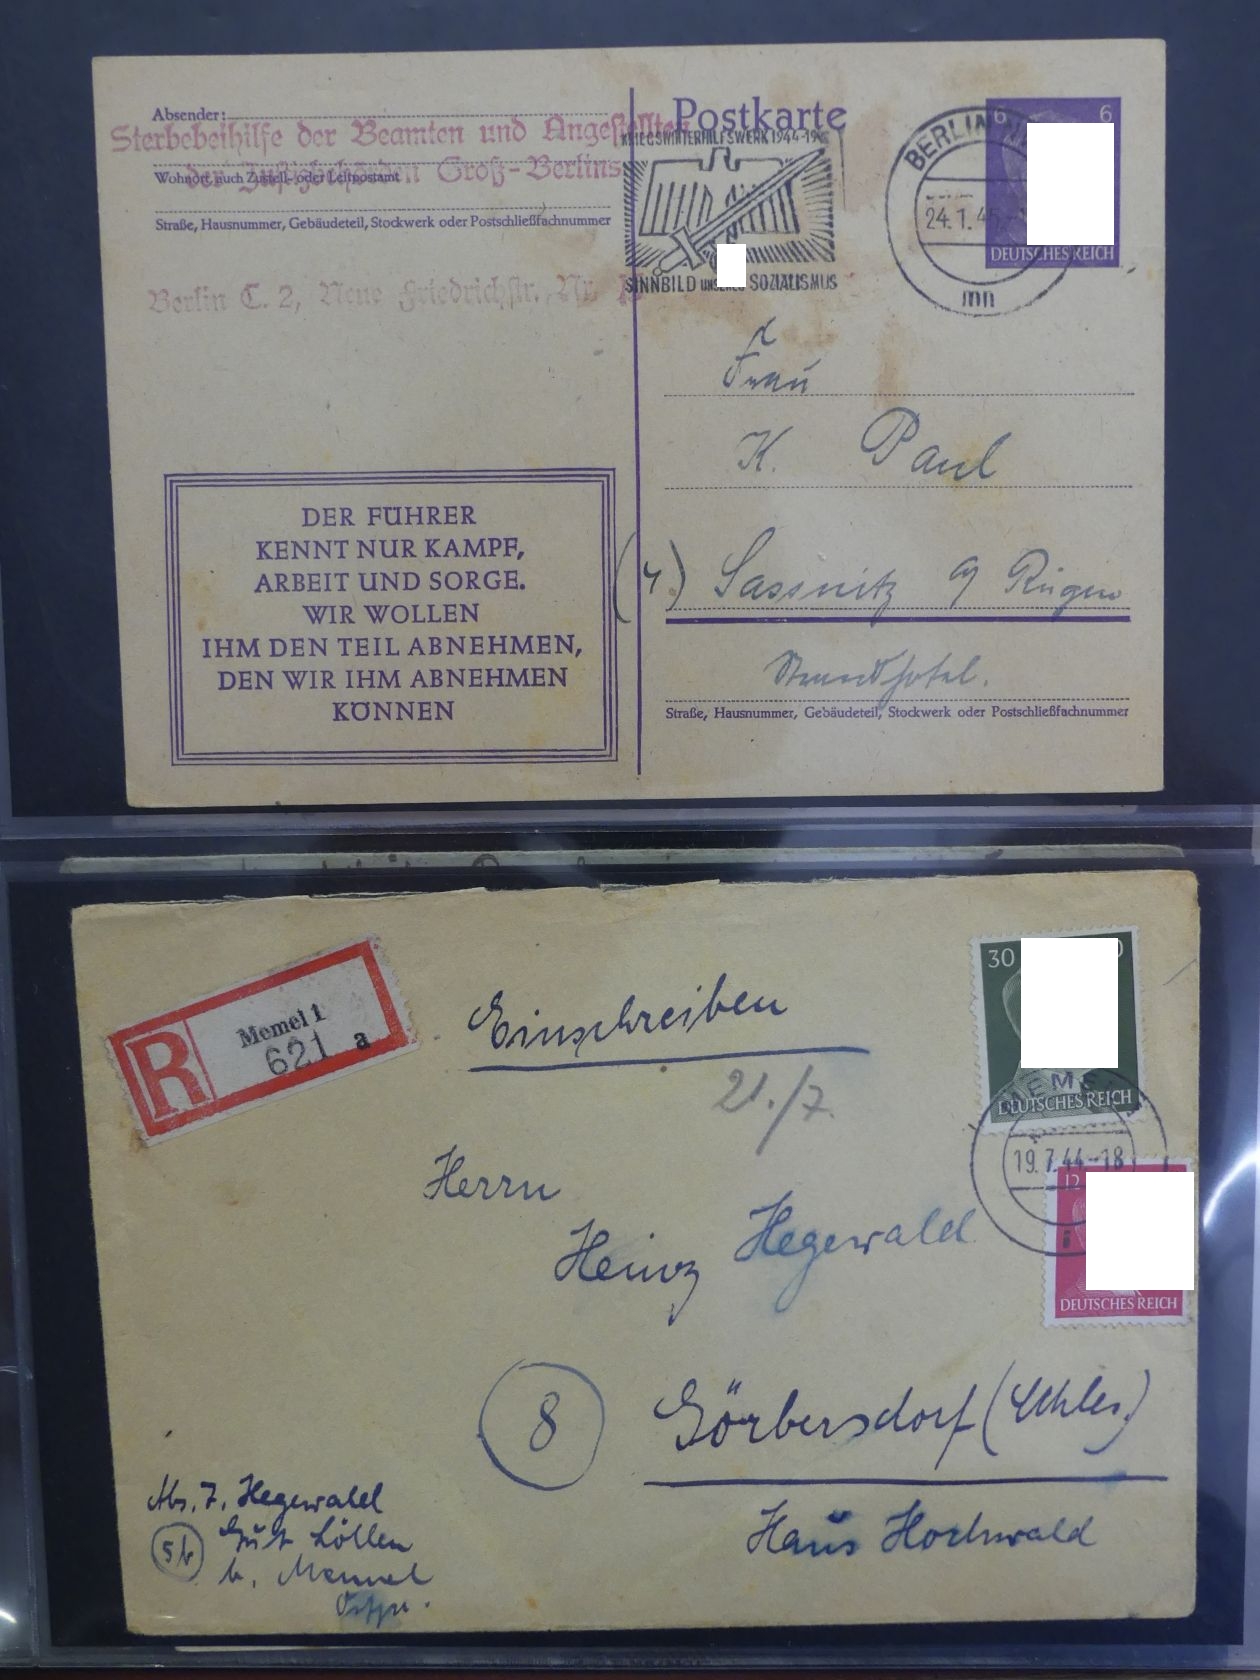 Absender:
Sterbebeihilfe der Beamten und Angestellten
der Justizbehörden Groß-Berlins
Wohnort, auch Zustell- oder Leitpostamt
Straße, Hausnummer, Gebäudeteil, Stockwerk oder Postschließfachnummer
Berlin C. 2, Neue Friedrichstr., Nr.
DER FÜHRER
KENNT NUR KAMPF,
ARBEIT UND SORGE.
WIR WOLLEN
IHM DEN TEIL ABNEHMEN,
DEN WIR IHM ABNEHMEN
KÖNNEN
Postkarte
KRIEGSWINTERHILFSWERK 1944-1945
SINNBILD UNSERES SOZIALISMUS
BERLIN
24.1.45
mn
6 6
DEUTSCHES REICH
Frau
K. Paul
(4) Sassnitz a/ Rügen
Strandhotel.
Straße, Hausnummer, Gebäudeteil, Stockwerk oder Postschließfachnummer
R
Memel 1
621 a
Einschreiben
21./7.
30
DEUTSCHES REICH
MEMEL
19.7.44-18
12
DEUTSCHES REICH
Herrn
Heinz Hegewald
8
Görbersdorf (Schles.)
Haus Hochwald
Abs. F. Hegewald
5b
Gut Löllen
b. Memel
Ostpr.